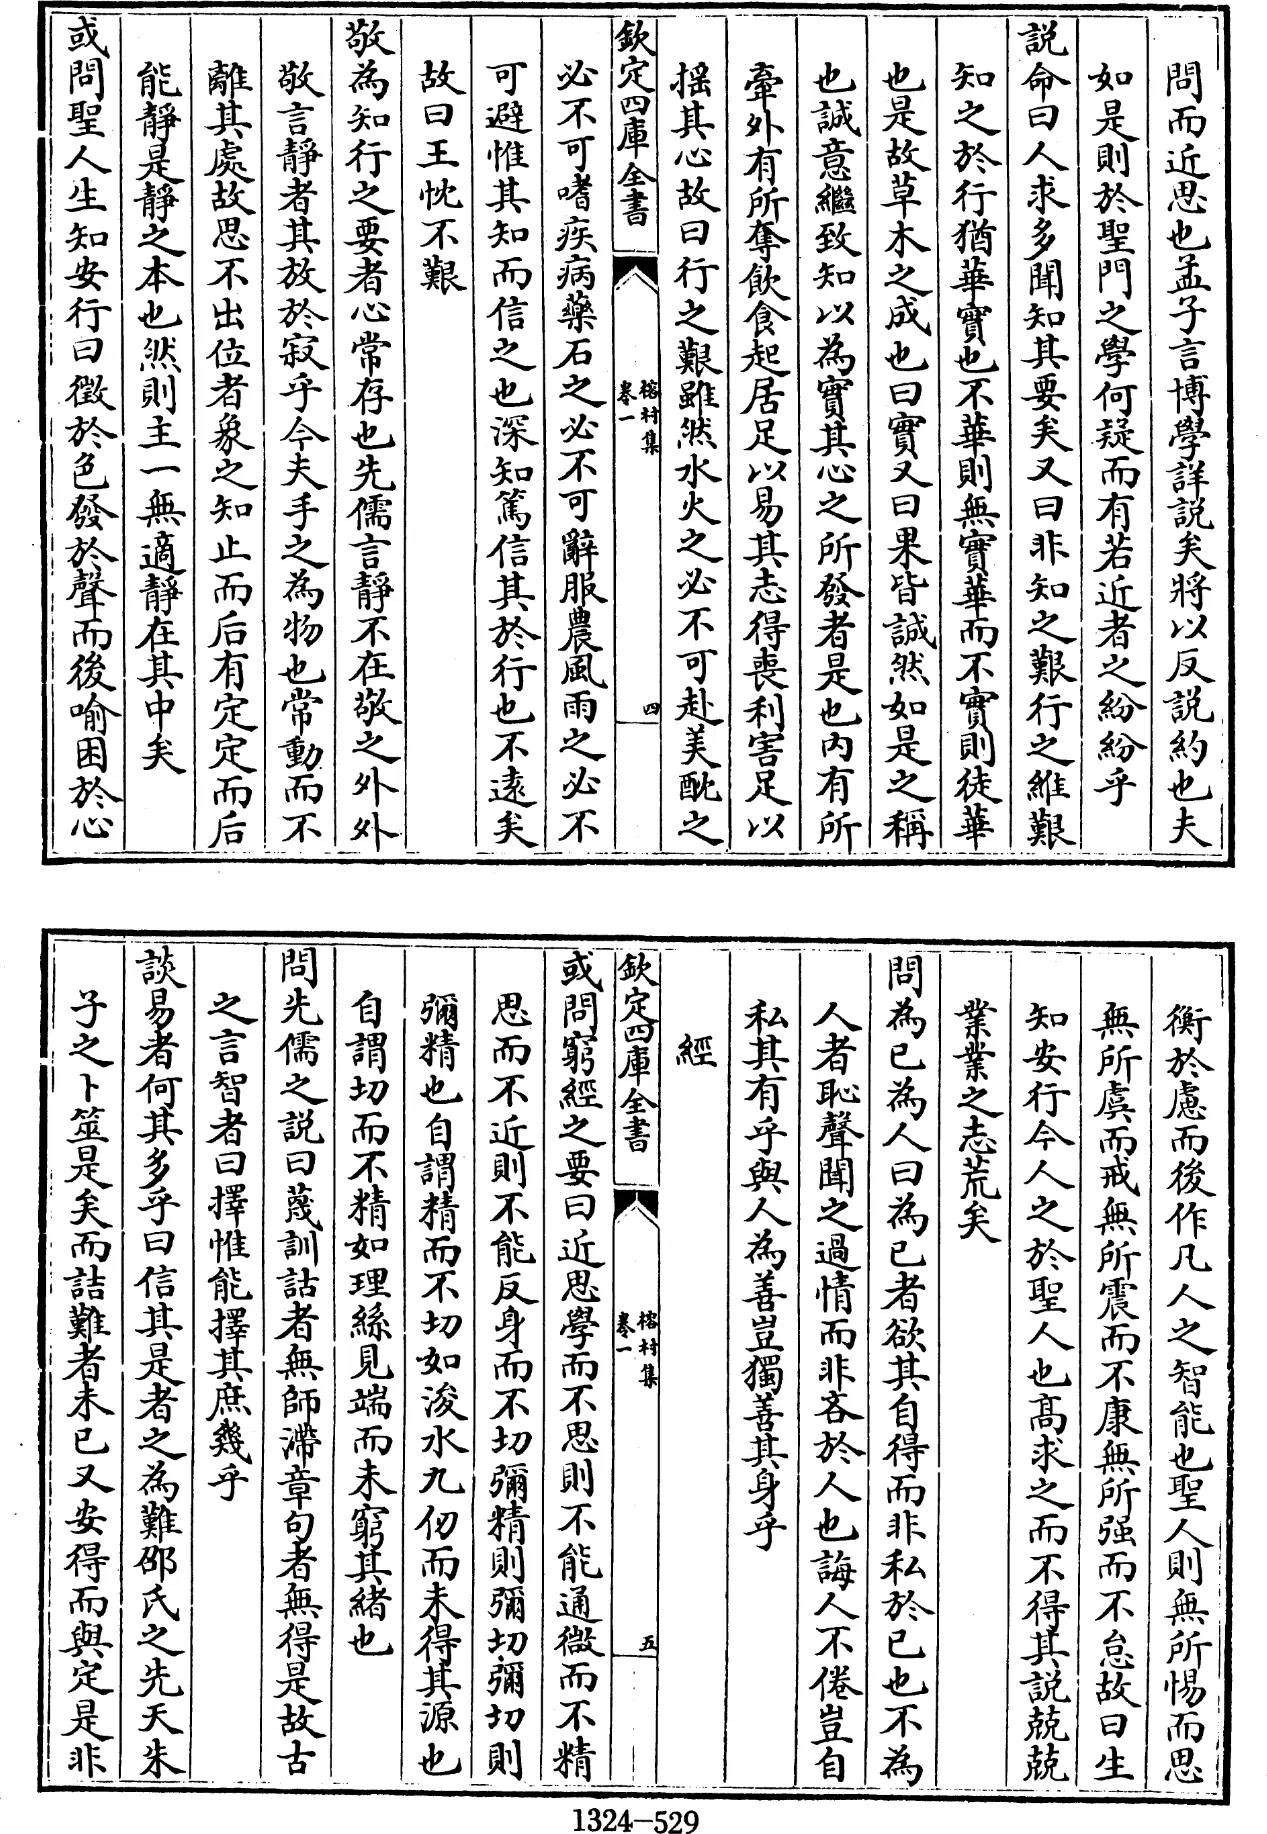 問而近思也孟子言博學詳説矣將以反説約也夫
如是則於聖門之學何疑而有若近者之紛紛乎
説命曰人求多聞知其要矣又曰非知之艱行之維艱
知之於行猶華實也不華則無實華而不實則徒華
也是故草木之成也曰實又曰果皆誠然如是之稱
也誠意繼致知以為實其心之所發者是也内有所
牽外有所奪飲食起居足以易其志得喪利害足以
揺其心故曰行之艱雖然水火之必不可赴美酖之
欽定四庫全書
榕村集
卷一
四
必不可嗜疾病藥石之必不可辭服農風雨之必不
可避惟其知而信之也深知篤信其於行也不遠矣
故曰王忱不艱
敬為知行之要者心常存也先儒言靜不在敬之外外
敬言靜者其放於寂乎今夫手之為物也常動而不
離其處故思不出位者象之知止而后有定定而后
能靜是靜之本也然則主一無適靜在其中矣
或問聖人生知安行曰徵於色發於聲而後喻困於心
衡於慮而後作凡人之智能也聖人則無所惕而思
無所虞而戒無所震而不康無所强而不怠故曰生
知安行今人之於聖人也髙求之而不得其説兢兢
業業之志荒矣
問為已為人曰為已者欲其自得而非私於已也不為
人者恥聲聞之過情而非吝於人也誨人不倦豈自
私其有乎與人為善豈獨善其身乎
經
欽定四庫全書
榕村集
卷一
五
或問窮經之要曰近思學而不思則不能通微而不精
思而不近則不能反身而不切彌精則彌切彌切則
彌精也自謂精而不切如浚水九仞而未得其源也
自謂切而不精如理絲見端而未窮其緒也
問先儒之説曰蔑訓詁者無師滯章句者無得是故古
之言智者曰擇惟能擇其庶幾乎
談易者何其多乎曰信其是者之為難邵氏之先天朱
子之卜筮是矣而詰難者未已又安得而與定是非
1324-529